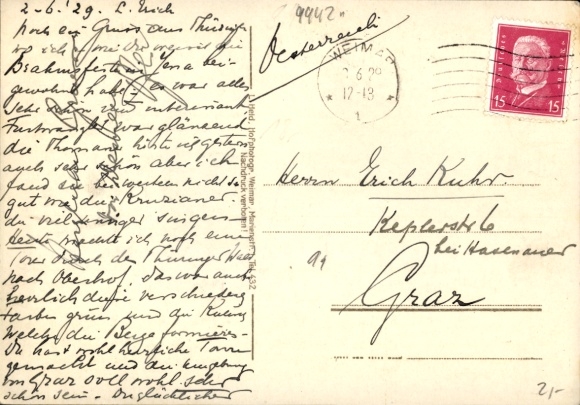 2-6.'29. L. Erich
noch ein Gruss aus Thüringen
wo ich
Brahmsfest in Jena bei-
gewohnt habe. es war alles
sehr schön und interessant
Furtwängler war glänzend
die Thomaner hörte ich gestern
auch sehr schön aber ich
fand sie bei weitem nicht so
gut wie die Kruzianer.
die viel inniger singen.
Heute machte ich noch eine
Tour durch den Thüringer Wald
nach Oberhof. das war auch
herrlich diese verschiedenen
Farben grün und die
Welche die Berge formieren.
Du hast wohl herrliche Touren
gemacht und die Umgebung
von Graz soll wohl sehr
schön sein.
9942
Oesterreich
WEIMAR
2.6.29
12-13
1
DEUTSCHES REICH
15 15
Nachdruck verboten!
Herrn Erich Kuhr.
Keplerstr 6
bei Hasenauer
Graz
2,-